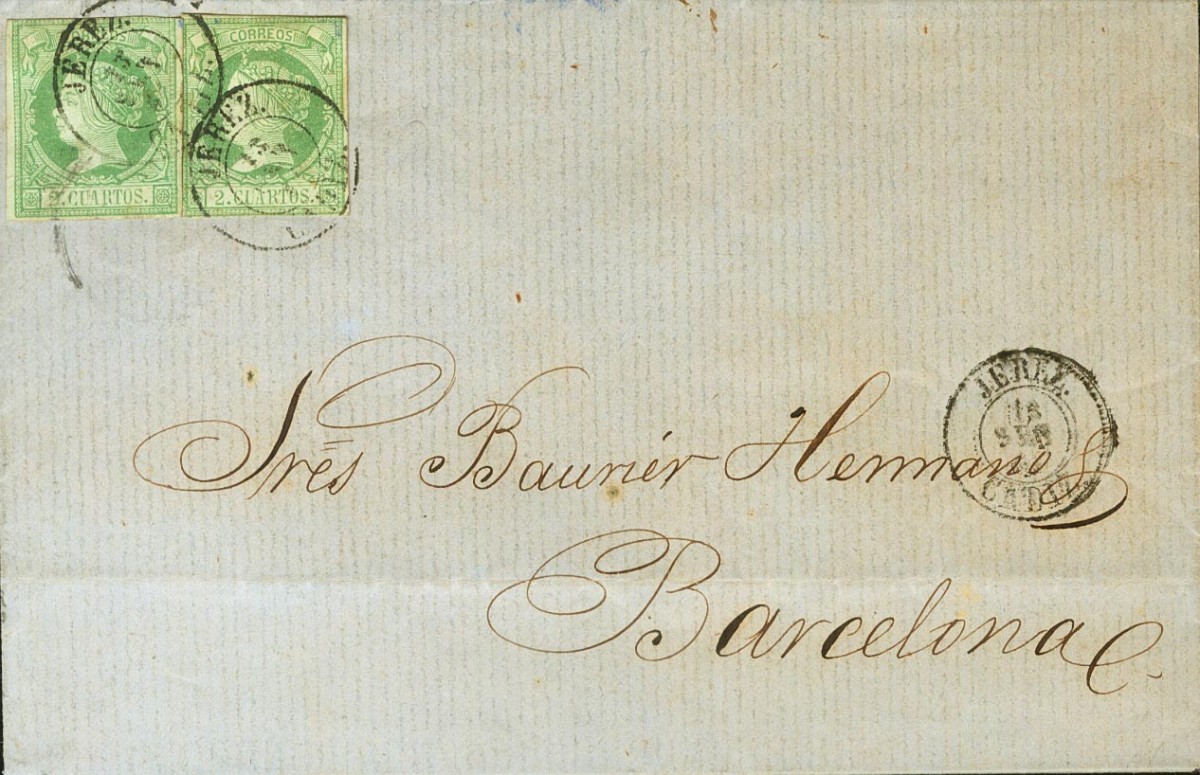 CORREOS
2. CUARTOS.
2. CUARTOS.
JEREZ.
JEREZ.
Sres Baurier Hermanos
Barcelona
JEREZ.
CADIZ